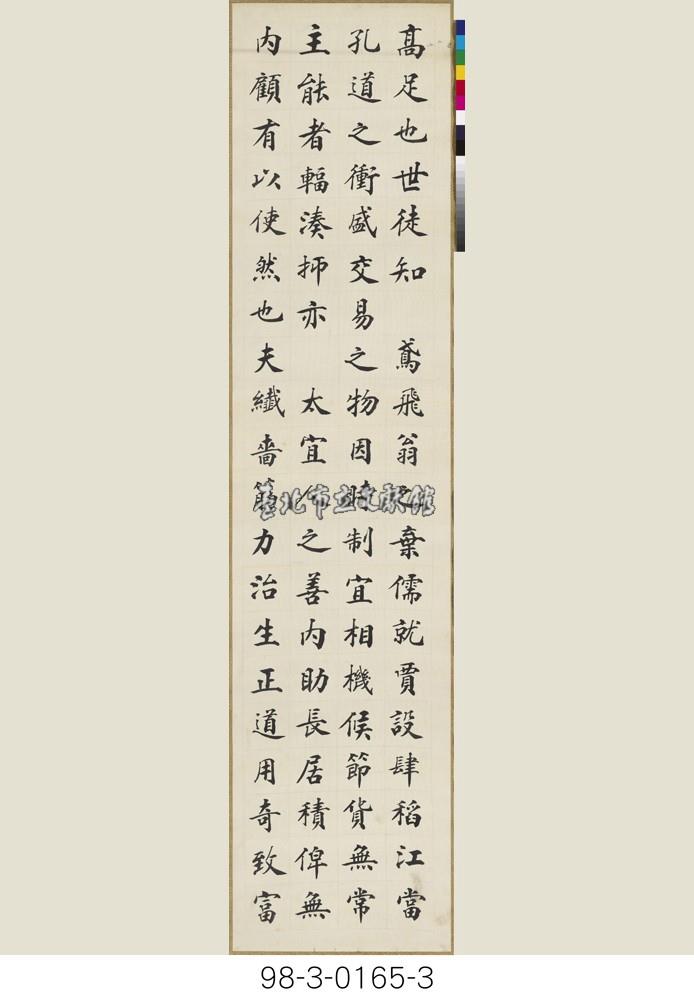 高足也世徒知　鳶飛翁之棄儒就賈設肆稻江當
孔道之衝盛交易之物因時制宜相機候節貨無常
主能者輻湊抑亦　太宜人之善內助長居積俾無
內顧有以使然也夫纖嗇筋力治生正道用奇致富
臺北市立文獻館
98-3-0165-3